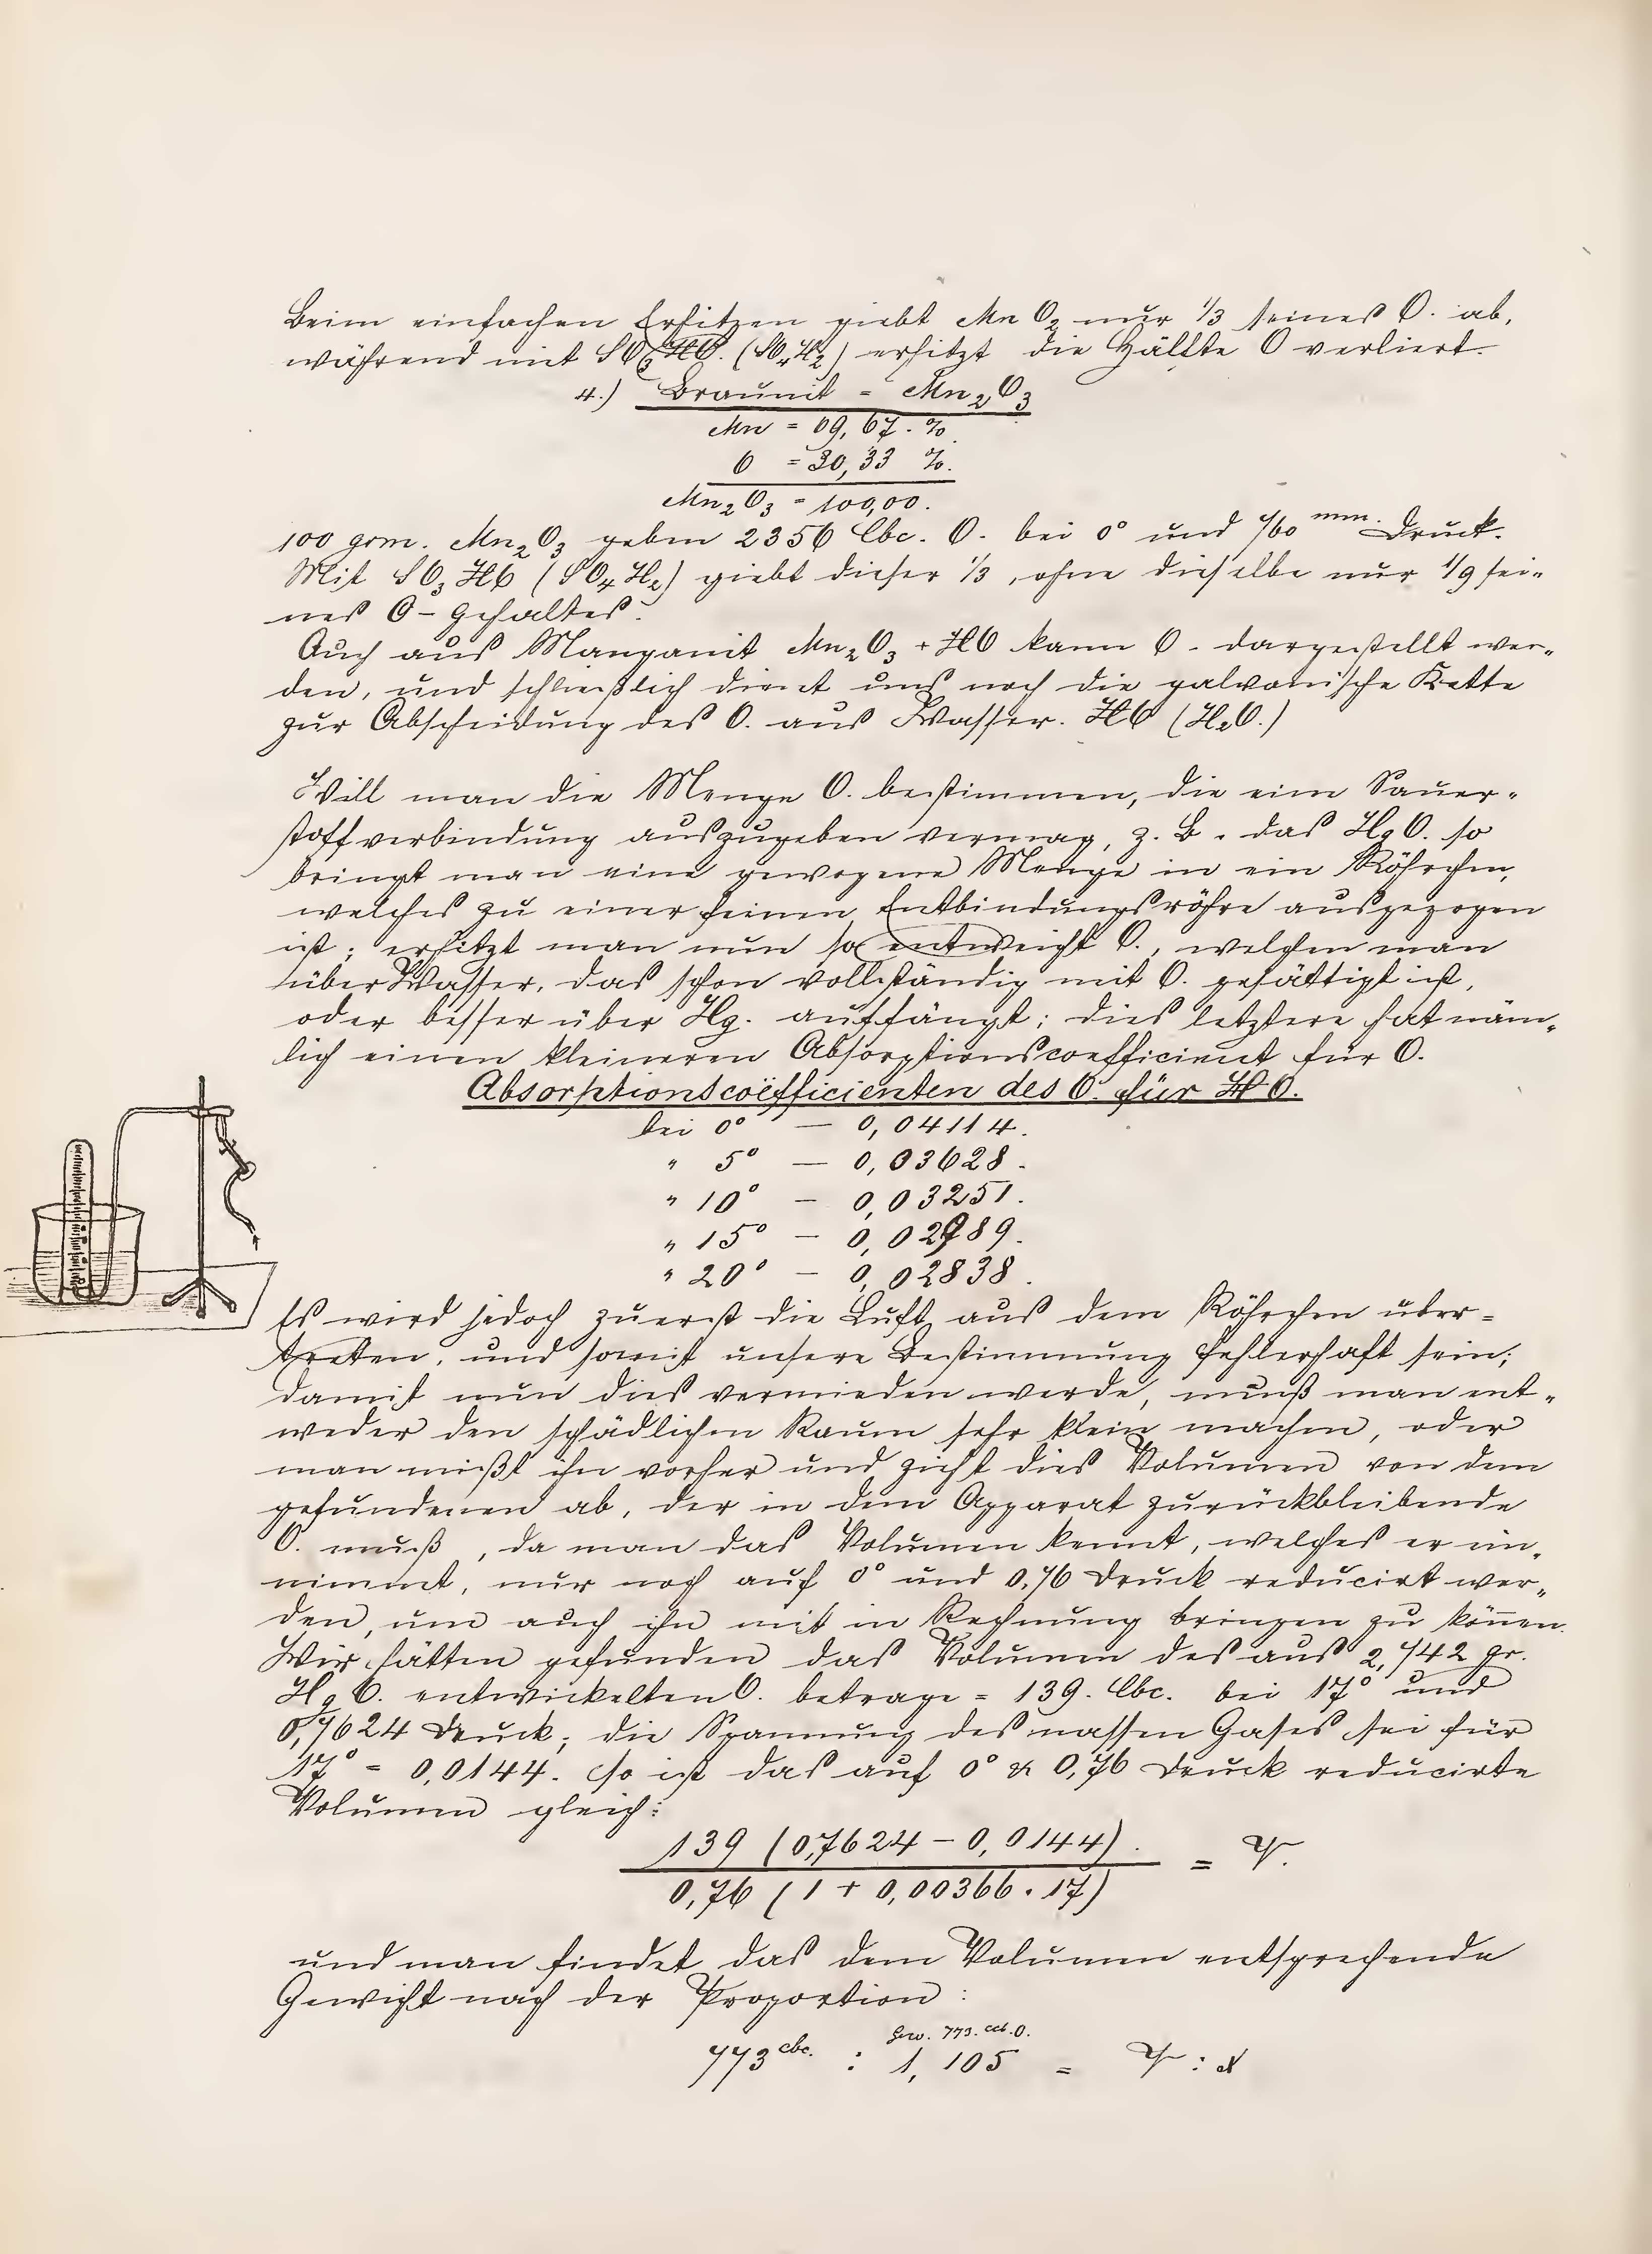 Beim einfachen Erhitzen giebt MnO₂ nur 1/3 seines O. ab,
während mit SO₃HO. (SO₄H₂) erhitzt die Hälfte O verliert.
4.) Braunit = Mn₂O₃
Mn = 69,67. %.
O = 30,33 %.
Mn₂O₃ = 100,00.
100 grm. Mn₂O₃ geben 2356 Cbc. O. bei 0° und 760 mm. Druck.
Mit SO₃HO (SO₄H₂) giebt dieser 1/3, ohne dieselbe nur 1/9 sei-
nes O-Gehaltes.
Auch aus Manganit Mn₂O₃ + HO kann O. dargestellt wer-
den, und schließlich dient uns noch die galvanische Kette
zur Abscheidung des O. aus Wasser. HO (H₂O.)
Will man die Menge O. bestimmen, die eine Sauer-
stoffverbindung auszugeben vermag, z. B. das HgO. so
bringt man eine gewogene Menge in ein Röhrchen,
welches zu einer feinen Entbindungsröhre ausgezogen
ist; erhitzt man nun so entweicht O., welchen man
über Wasser, das schon vollständig mit O. gesättigt ist,
oder besser über Hg. auffängt; dies letztere hat näm-
lich einen kleineren Absorptionscoefficient für O.
Absorptionscoëfficienten des O. für HO.
bei 0° — 0,04114.
" 5° — 0,03628.
" 10° — 0,03251.
" 15° — 0,02989.
" 20° — 0,02838.
Es wird jedoch zuerst die Luft aus dem Röhrchen über-
treten, und somit unsere Bestimmung fehlerhaft sein;
damit nun dies vermieden werde, muß man ent-
weder den schädlichen Raum sehr klein machen, oder
man mißt ihn vorher und zieht dies Volumen von dem
gefundenen ab, der in dem Apparat zurückbleibende
O. muß, da man das Volumen kennt, welches er ein-
nimmt, nur noch auf 0° und 0,76 Druck reducirt wer-
den, um auch ihn mit in Rechnung bringen zu können.
Wir hätten gefunden das Volumen des aus 2,742 gr.
HgO. entwickelten O. betrage = 139. Cbc. bei 17° und
0,7624 Druck; die Spannung des nassen Gases sei für
17° = 0,0144. so ist das auf 0° & 0,76 Druck reducirte
Volumen gleich:
139 (0,7624 – 0,0144). = V.
0,76 (1 + 0,00366 . 17)
und man findet das dem Volumen entsprechende
Gewicht nach der Proportion:
Gew. 773. cct. O.
773 cbc. : 1,105 = V : x